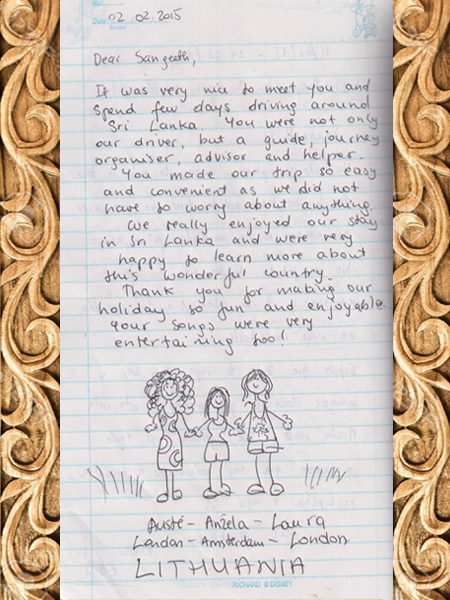 02.02.2015
Dear Sangeeth,
It was very nice to meet you and
spend few days driving around
Sri Lanka. You were not only
our driver, but a guide, journey
organiser, advisor and helper.
You made our trip so easy
and convenient as we did not
have to worry about anything.
We really enjoyed our stay
in Sri Lanka and were very
happy to learn more about
this wonderful country.
Thank you for making our
holiday so fun and enjoyable.
Your songs were very
entertaining too!
Austé - Anžela - Laura
London - Amsterdam - London
LITHUANIA
RICHARD © DISNEY